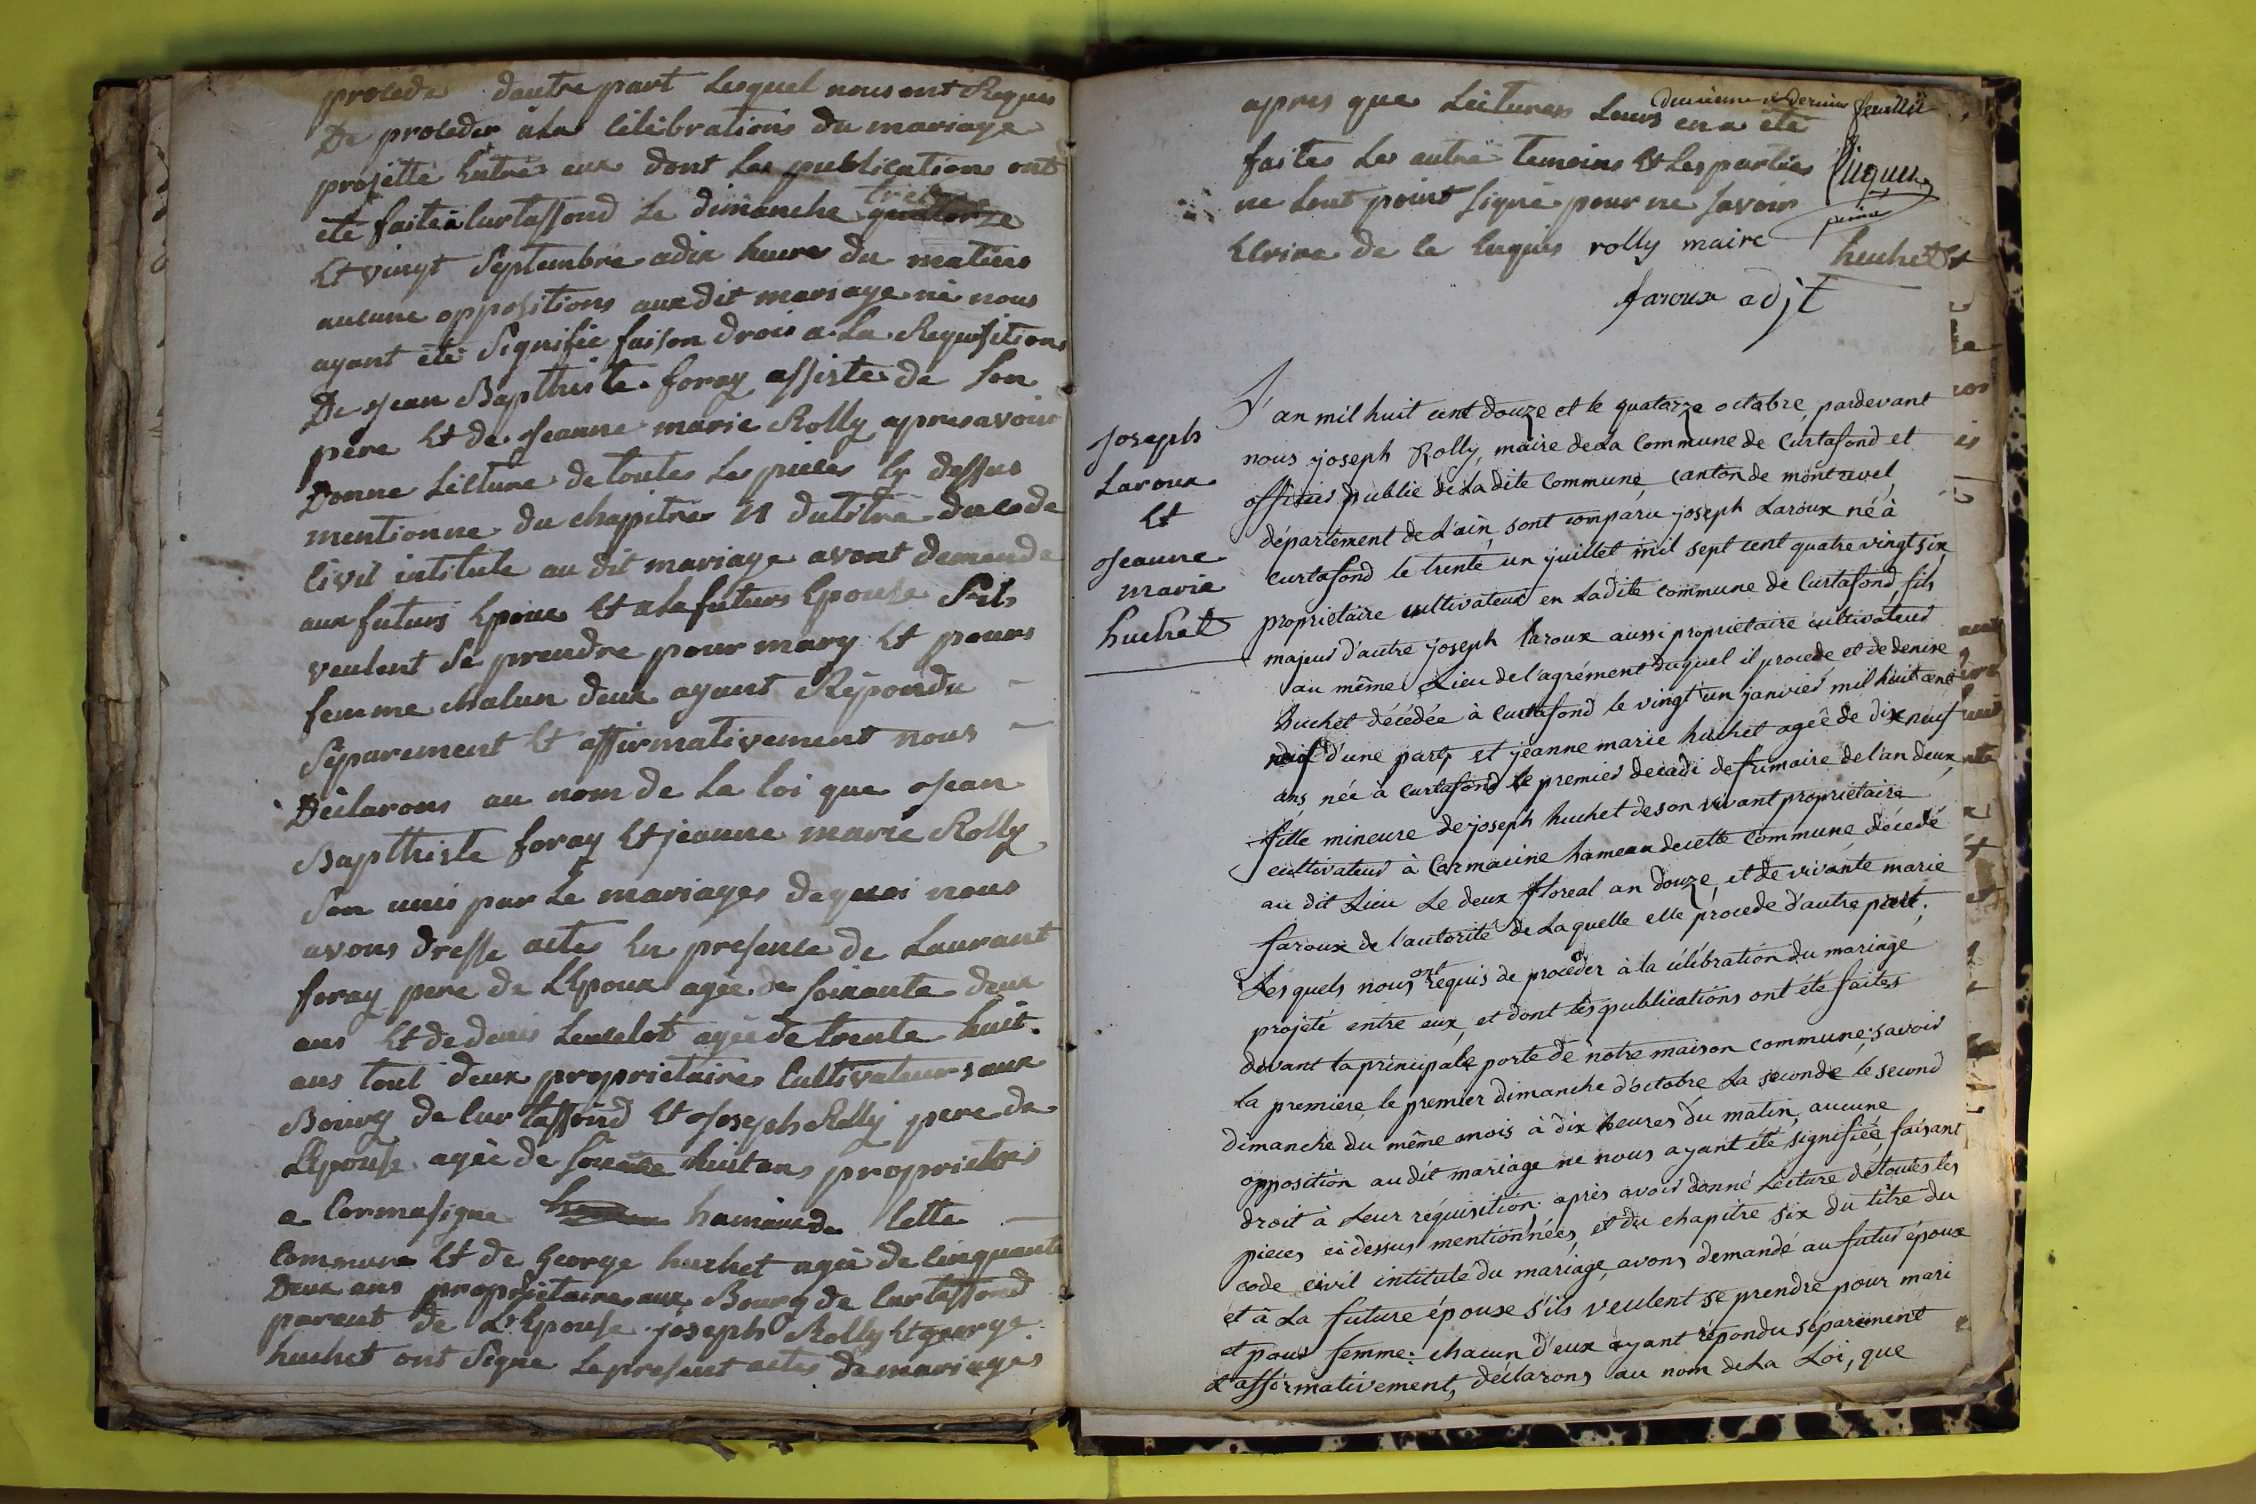 procede dautre part Lesquel nous ont Requis
De proceder ala Celebrations du mariage
projette Entre eux dont Les publications ont
ete faite a Curtassond Le dimanche treize quatorze
Et vingt Septembre adix heure du matins
aucune oppositions aux dit mariage ne nous
ayant été Signifie faison drois a La Requisitions
De Jean Bapthiste foray assiste de Son
père Et de Jeanne marie Rolly apres avoir
Donne Lecture de toutes Les pieces Cy dessus
mentionne du chapitre du titre du Code
Civil intitule au dit mariage avont demande
aux futurs Epoux Et ala futurs Epouse Sils
veulent Se prendre pour mary Et pours
femme chalun deux ayant Répondu
Séparement Et affirmativement nous
Déclarons au nom de La loi que Jean
Bapthiste foray Et jeanne marie Rolly
Son unis par Le mariages dequoi nous
avons dresse acte En presence de Laurant
foray pere de LEpoux agée de soixante deux
ans Et de denis agée de trente huit
ans tout deux proprietaires Cultivateurs aux
Bourg de Curtassond Et Joseph Rolly pere de
LEpouse agée de huit ans proprietres
a Cormasigne hamaux de Cette
Commune Et de George huchet agée de Cinquante
Deux ans proprietaires aux Bourg de Curtassond
parent de L'Epouse joseph Rolly Et george
huchet ont Signe Le present actes de mariages
deuxieme et dernier feuillet
apres que Lectures Leurs en a été
faites Les autre temoins Et Les parties
ne Sont point Signé pour ne Savoir
Ecrire de Ce Enquis rolly maire
huchet
faroux adjt
Joseph
Laroux
Et
Jeanne
marie
huchet
L'an mil huit cent douze et le quatorze octobre, pardevant
nous joseph Rolly, maire de La Commune de Curtafond et
officier public de La dite Commune, Canton de montrevel,
département de L'ain, sont comparu joseph Laroux né à
curtafond le trente un juillet mil sept cent quatre vingt six
propriétaire cultivateur en Ladite commune de Curtafond, fils
majeur d'autre joseph Laroux aussi propriétaire cultivateur
au même Lieu de l'agrément duquel il procede et de denise
huchet décédée à curtafond le vingt un janvier mil huit cent
neuf d'une part, et jeanne marie huchet agée de dix neuf
ans née à curtafond le premier decadi de frimaire de l'an deux,
fille mineure de joseph huchet de son vivant propriétaire
cultivateur à Carmacine hameau decette Commune, décedé
au dit Lieu Le deux floreal an douze, et de vivante marie
faroux de l'autorité de Laquelle elle procede d'autre part,
Lesquels nous ont requis de procèder à la célébration du mariage
projeté entre eux, et dont les publications ont été faites
devant la principale porte de notre maison commune; savoir
la premiere, le premier dimanche d'octobre, La seconde le second
dimanche du même mois à dix heures du matin, aucune
opposition au dit mariage ne nous ayant été signifiée, faisant
droit à Leur réquisition après avoir donné Lecture de toutes les
pieces ci dessus mentionnées, et du chapitre six du titre du
code civil intitulé du mariage, avons demandé au futur époux
et à La future épouse s'ils veulent se prendre pour mari
et pour femme: chacun d'eux ayant répondu séparement
& affirmativement, déclarons au nom de La Loi, que